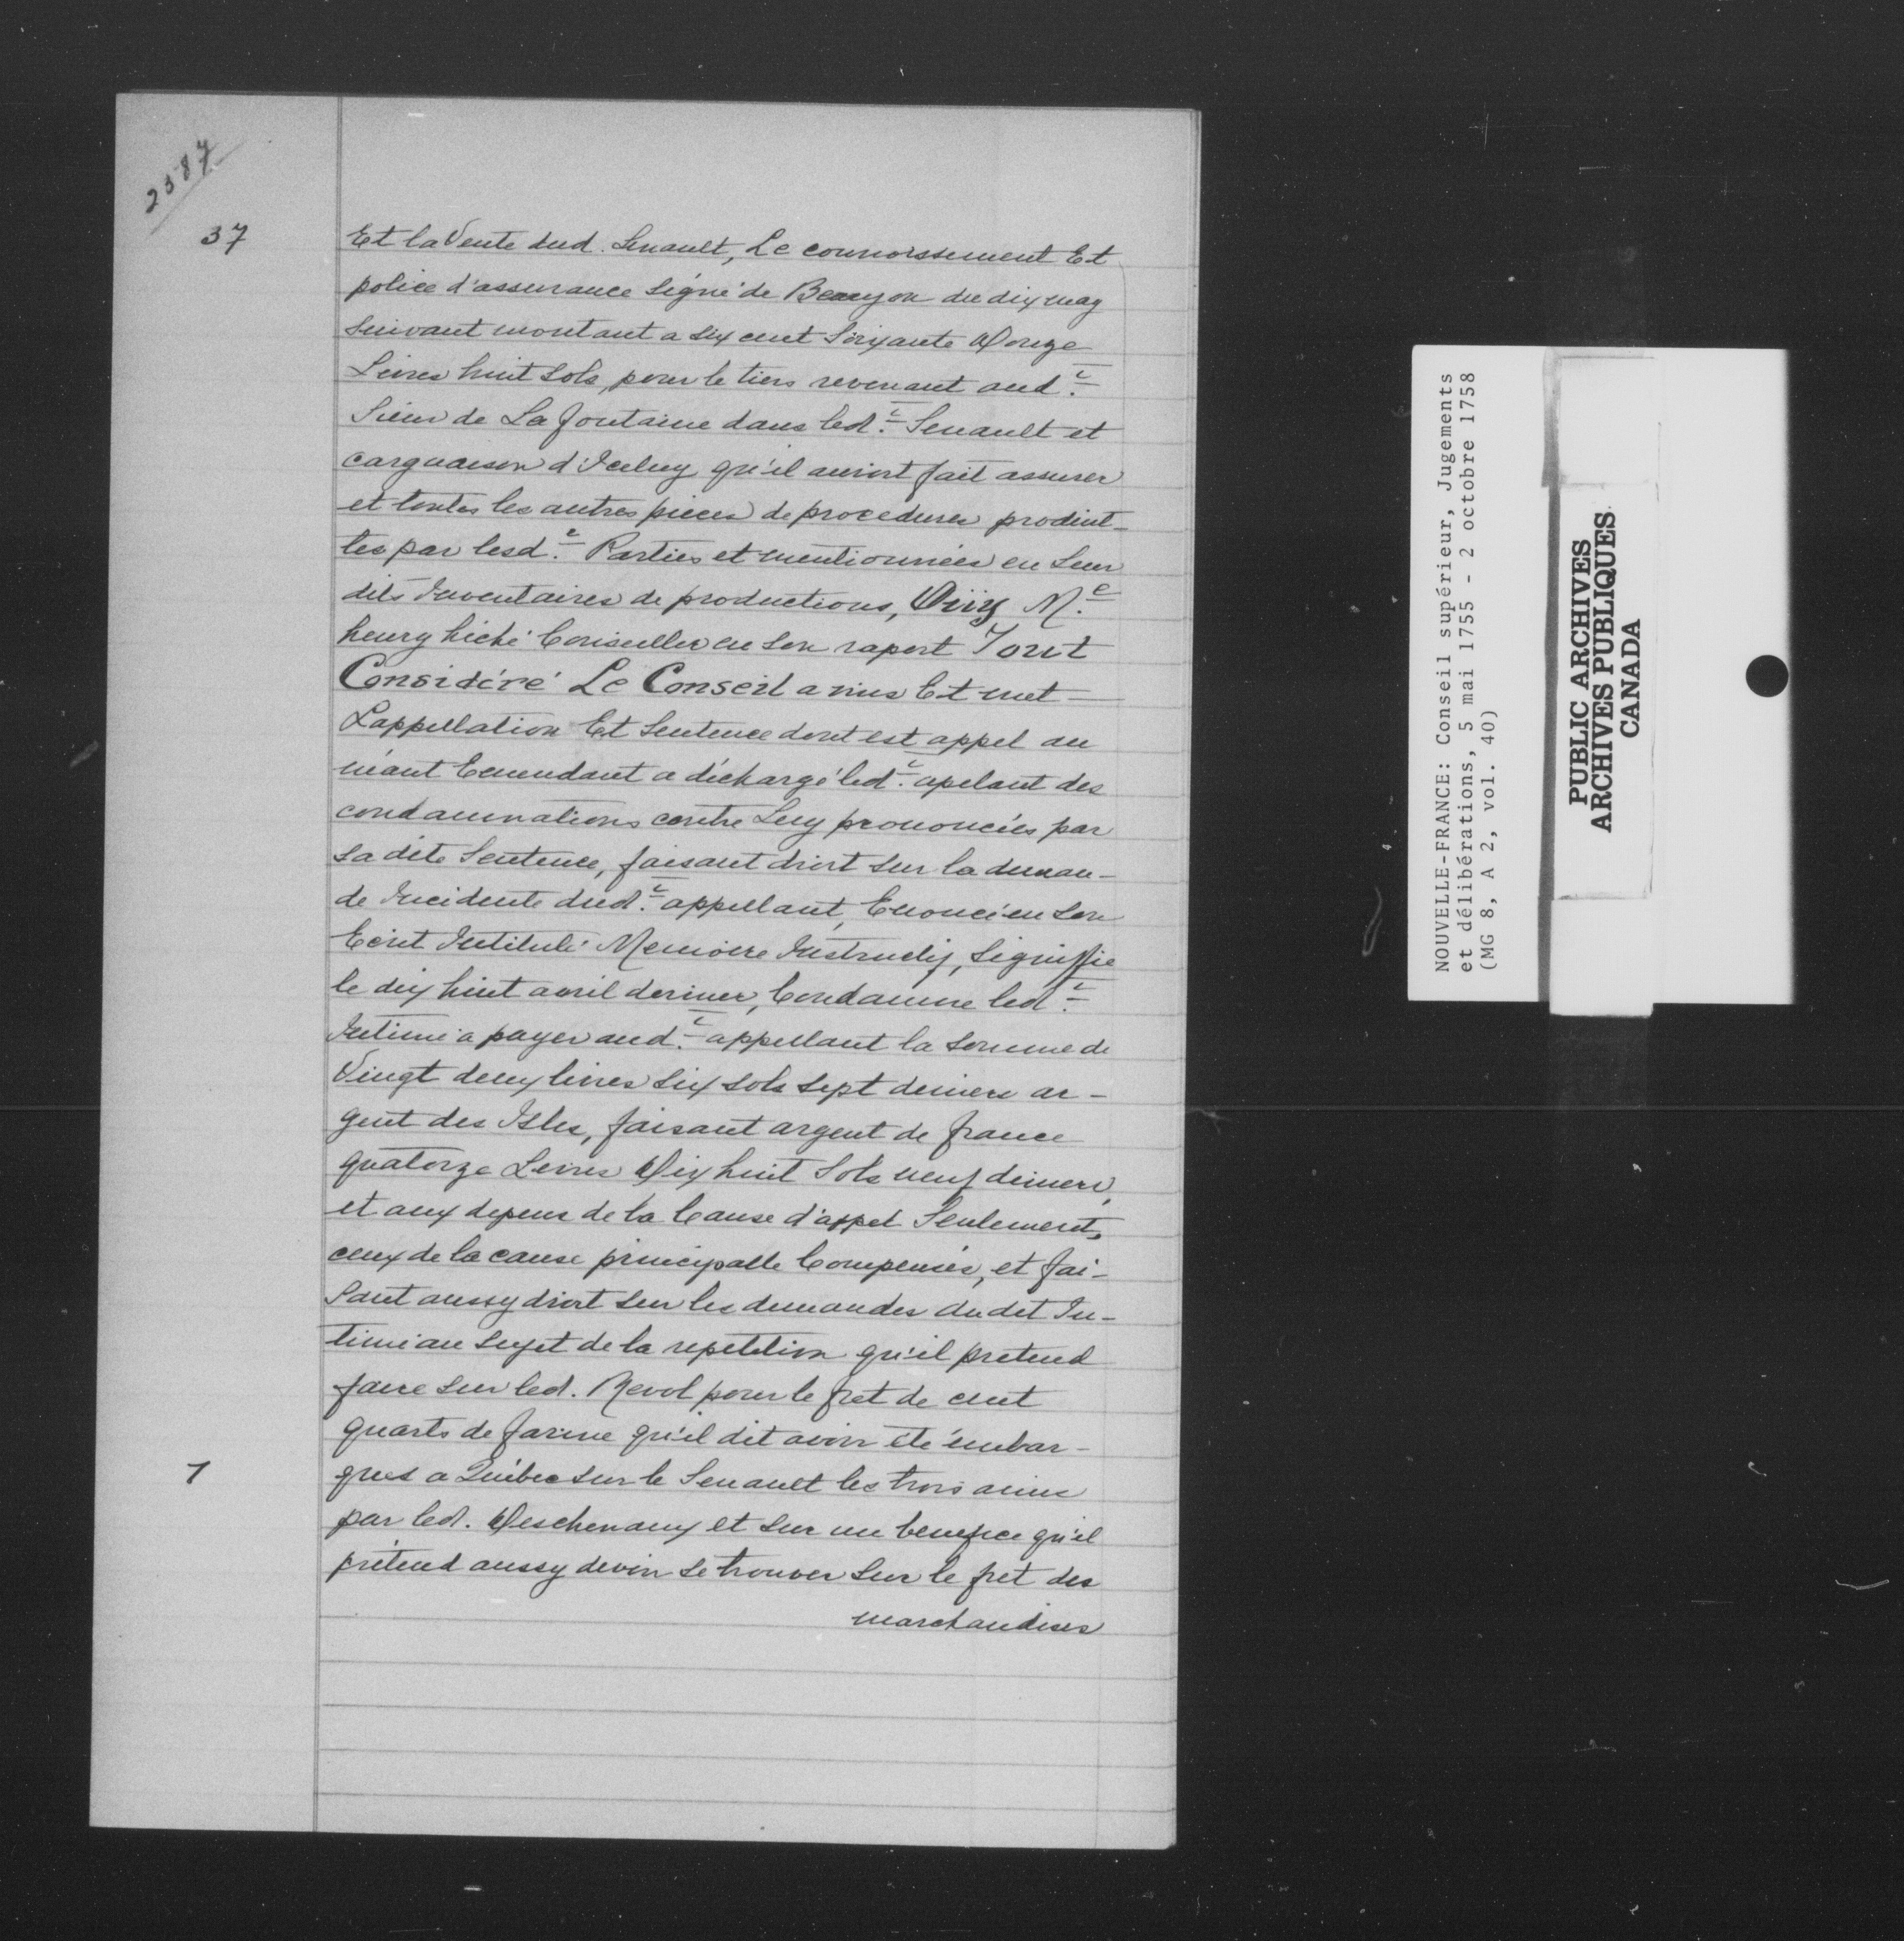 2587
37
Et la Vente dud. Senault, Le connoissement Et
police d'assurance Signé de du dix may
Suivant montant a Six cent Soixante Douze
Livres huit Sols, pour le tiers revenant aud.t
Sieur de La fontaine dans led.t Senault et
cargaison d'Iceluy qu'il auroit fait assurer
et toutes les autres pieces de procedures produit-
tes par lesd.e Parties et mentionnées en Leur
dits Inventaires de productions, Oüy M.e
henry hiché Conseiller en Son raport Tout
Considéré Le Conseil a mis Et met
L'appellation Et Sentence dont est appel au
néant Emendant a déchargé led.t apelant des
condamnations contre Luy prononcées par
La dite Sentence, faisant droit Sur la deman-
de Incidente dud.t appellant, Enoncé en Son
Ecrit Intitulé Memoire Instructif, Signiffié
le dix huit avril dernier, Condamne led.t
Intimé a payer aud.t appellant la Somme de
Vingt deux livres Six Sols Sept deniers ar-
gent des Isles, faisant argent de france
quatorze Livres Dix huit Sols neuf deniers,
et aux depens de la Cause d'appel Seulement,
ceux de la cause principalle Compensés, et fai-
Sant aussy droit Sur les demandes dudit In-
timé au Sujet de la repetition qu'il pretend
faire Sur led. Revol pour le fret de cent
quarts de farine qu'il dit avoir été embar-
qués a Québec Sur le Senault les trois amis
par led. Deschenaux et Sur un benefice qu'il
prétend aussy devoir Se trouver Sur le fret des
7
marchandises
NOUVELLE-FRANCE: Conseil supérieur, Jugements
et délibérations, 5 mai 1755 - 2 octobre 1758
(MG 8, A 2, vol. 40)
PUBLIC ARCHIVES
ARCHIVES PUBLIQUES
CANADA